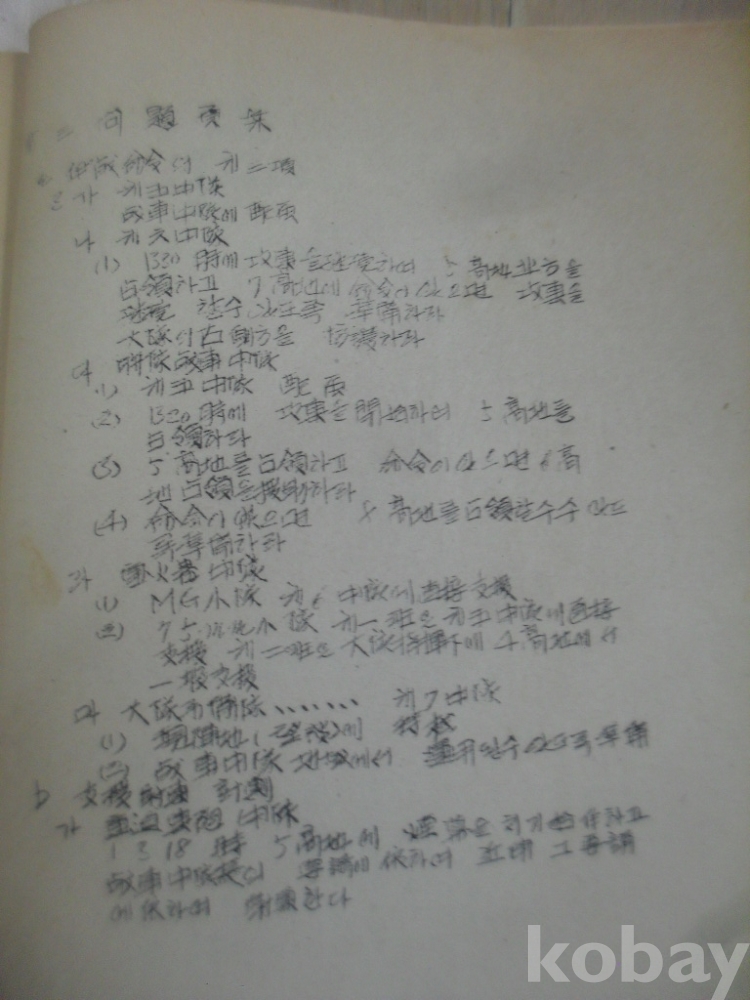 二 問題
命令의 제二項
가 제五中隊
戰車中隊에 配屬
나 제六中隊
(1) 1320時에 攻擊을 하며 5高地 北方을
占領하고 7高地에 命令이 있으면 攻擊을
할수 있도록 準備하라
大隊의 右側方을 防護하라
다 聯隊戰車中隊
(1) 제五中隊 配屬
(2) 1320時에 攻擊을 開始하여 5高地를
占領하라
(3) 5高地를 占領하고 命令이 있으면 6高
地占領을 援助하라
(4) 命令이 있으면 8高地를 占領할수 있도
록 準備하라
라 重火器中隊
(1) MG小隊 제6中隊에 直接支援
(2) 75 小隊 제一班은 제五中隊에 直接
支援 제二班은 大隊指揮下에 4高地에서
一般支援
마 大隊予備隊....... 제7中隊
(1) 에
(2) 戰車中隊 地域에서 運用될수 있도록 準備
b 支援射擊 計劃
가 重迫擊砲中隊
1318時 5高地에 煙幕을 하고
戰車中隊長의 要請에 依하여
에 依하여 射擊한다
kobay